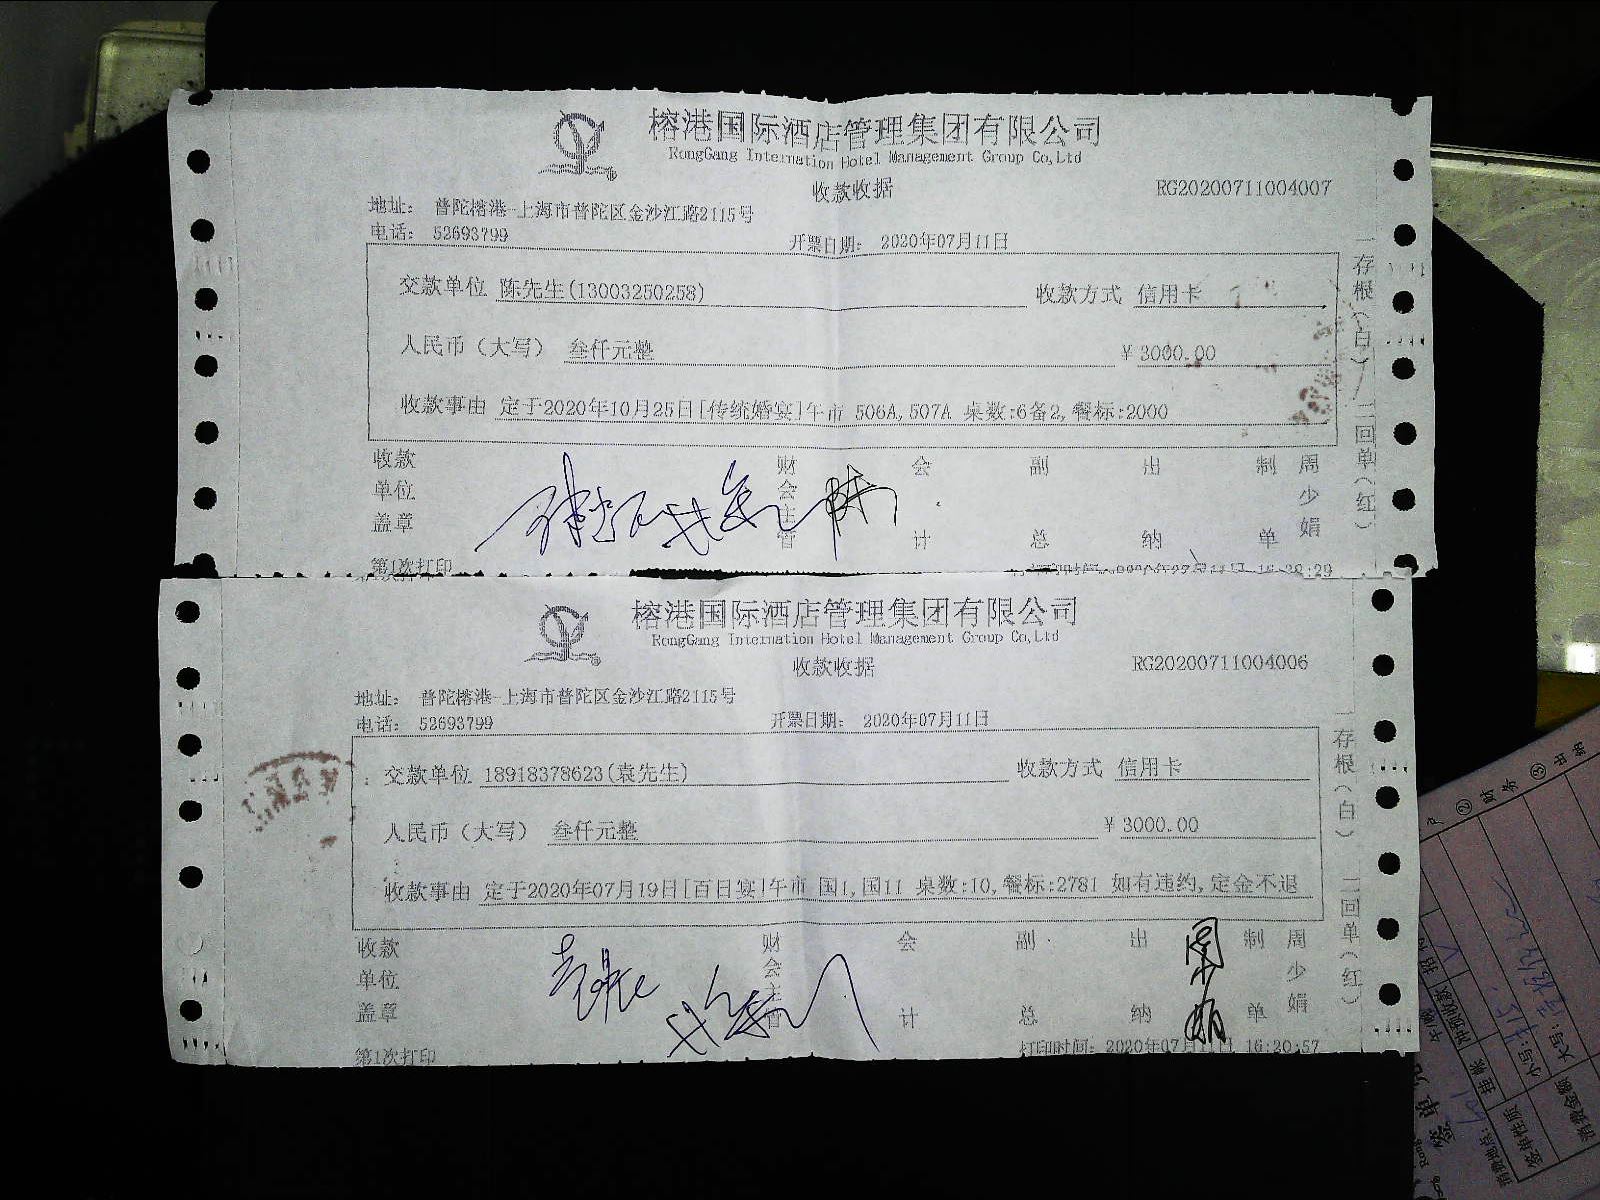 榕港国际酒店管理集团有限公司
RongGang Internation Hotel Management Group Co,Ltd
收款收据
RG20200711004007
地址: 普陀榕港-上海市普陀区金沙江路2115号
电话: 52693799
开票日期: 2020年07月11日
交款单位 陈先生(13003250258) 收款方式 信用卡
人民币（大写） 叁仟元整 ¥ 3000.00
收款事由 定于2020年10月25日[传统婚宴]午市 506A,507A 桌数:6备2,餐标:2000
收款单位盖章 财会主管 会计 副总 出纳 制单 周少娟
存根（白） 二回单（红）
第1次打印
榕港国际酒店管理集团有限公司
RongGang Internation Hotel Management Group Co,Ltd
收款收据
RG20200711004006
地址: 普陀榕港-上海市普陀区金沙江路2115号
电话: 52693799
开票日期: 2020年07月11日
交款单位 18918378623(袁先生) 收款方式 信用卡
人民币（大写） 叁仟元整 ¥ 3000.00
收款事由 定于2020年07月19日[百日宴]午市 国1,国11 桌数:10,餐标:2781 如有违约,定金不退
收款单位盖章 财会主管 会计 副总 出纳 周少娟 制单 周少娟
存根（白） 二回单（红）
第1次打印
打印时间: 2020年07月11日 16:20:57